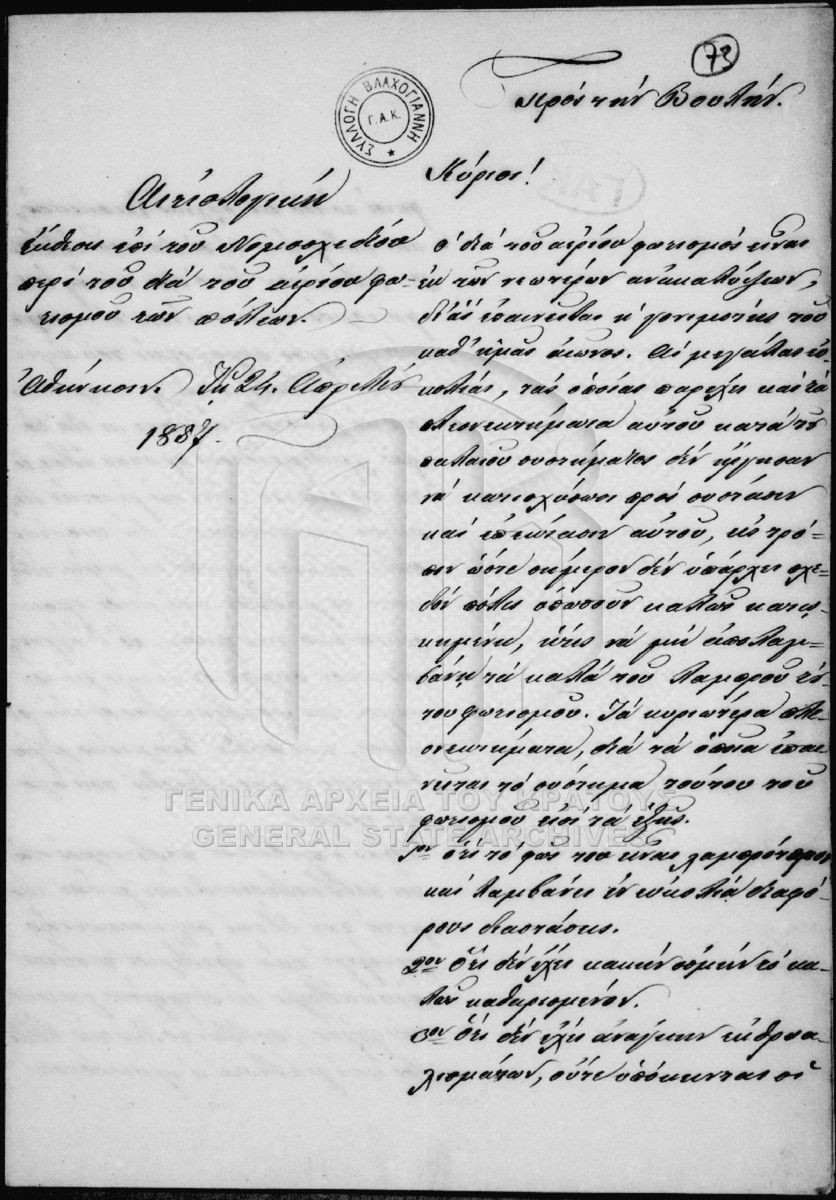 73
Πρὸς τὴν Βουλήν.
ΣΥΛΛΟΓΗ ΒΛΑΧΟΓΙΑΝΝΗ
Γ.Α.Κ.
Κύριοι!
Αἰτιολογικὴ
ἔκθεσις ἐπὶ τοῦ Νομοσχεδίου
περὶ τοῦ διὰ τοῦ ἀερίου φω-
τισμοῦ τῶν πόλεων.
Ἀθήνησιν. Τῇ 24. Ἀπριλίου
1857.
Ὁ διὰ τοῦ ἀερίου φωτισμὸς εἶναι
ἐκ τῶν νεωτέρων ἀνακαλύψεων,
δι' ἃς ἐπαινεῖται ἡ γονιμότης τοῦ
καθ' ἡμᾶς αἰῶνος. Αἱ μεγάλαι εὐ-
κολίαι, τὰς ὁποίας παρέχει καὶ τὰ
πλεονεκτήματα αὐτοῦ κατὰ τοῦ
παλαιοῦ συστήματος δὲν ἤργησαν
νὰ κατισχύσωσι πρὸς σύστασιν
καὶ ἐπέκτασιν αὐτοῦ, εἰς τρό-
πον ὥστε σήμερον δὲν ὑπάρχει σχε-
δὸν πόλις ὁπωσοῦν καλῶς κατῳ-
κημένη, ἥτις νὰ μὴ ἀπολαμ-
βάνῃ τὰ καλὰ τοῦ λαμπροῦ τού-
του φωτισμοῦ. Τὰ κυριώτερα πλε-
ονεκτήματα, διὰ τὰ ὁποῖα ἐπαι-
νεῖται τὸ σύστημα τοῦτο τοῦ
φωτισμοῦ εἰσὶ τὰ ἑξῆς.
1ον ὅτι τὸ φῶς του εἶναι λαμπρότερον
καὶ λαμβάνει ἐν εὐκολίᾳ διαφό-
ρους διαστάσεις.
2ον ὅτι δὲν ἔχει κακὴν ὀσμὴν τὸ κα-
λῶς καθαρισμένον.
3ον ὅτι δὲν ἔχει ἀνάγκην ἐκθρυα-
λισμάτων, οὔτε ὑπόκεινται οἱ
ΓΕΝΙΚΑ ΑΡΧΕΙΑ ΤΟΥ ΚΡΑΤΟΥΣ
GENERAL STATE ARCHIVES